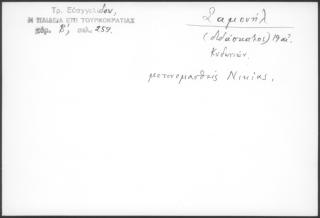 Τρ. Ευαγγελίδου,
Η ΠΑΙΔΕΙΑ ΕΠΙ ΤΟΥΡΚΟΚΡΑΤΙΑΣ
τόμ. Β', σελ. 259.
Σαμουήλ
(διδάσκαλος) 19 αἰ.
Κυδωνιῶν.
μετονομασθείς Νικίας.